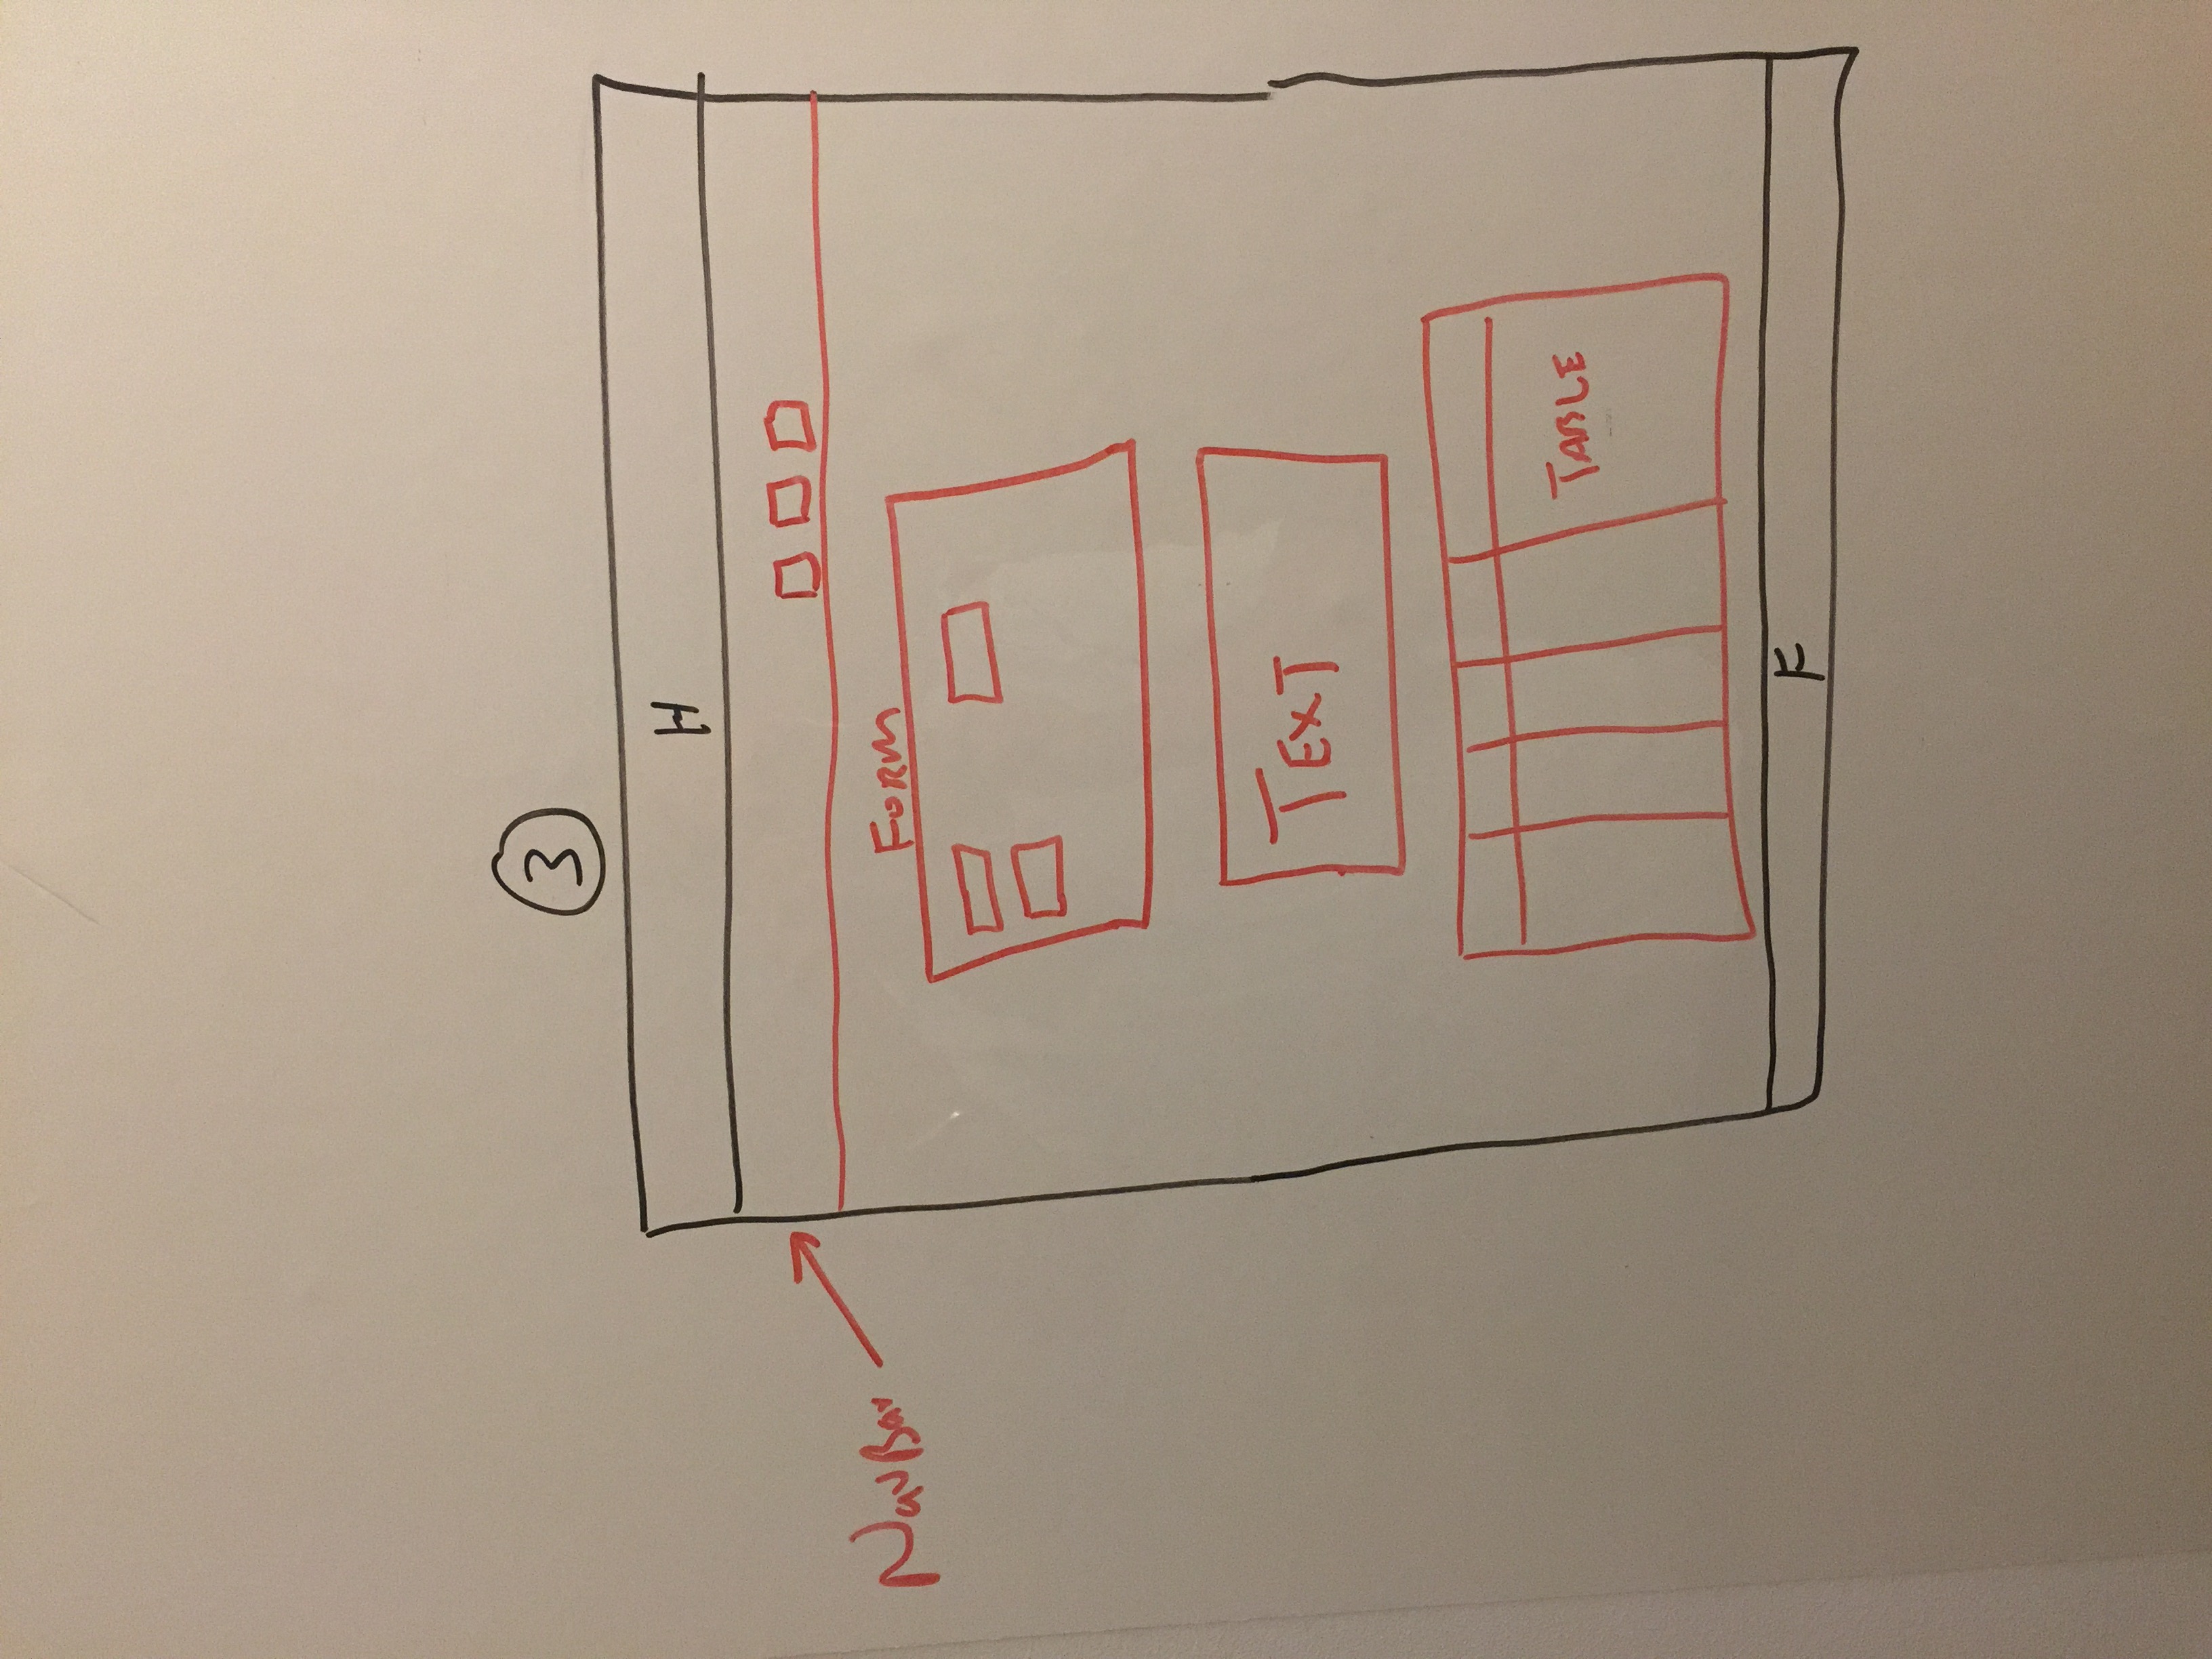 3
H
NavBar
FORM
TEXT
TABLE
F